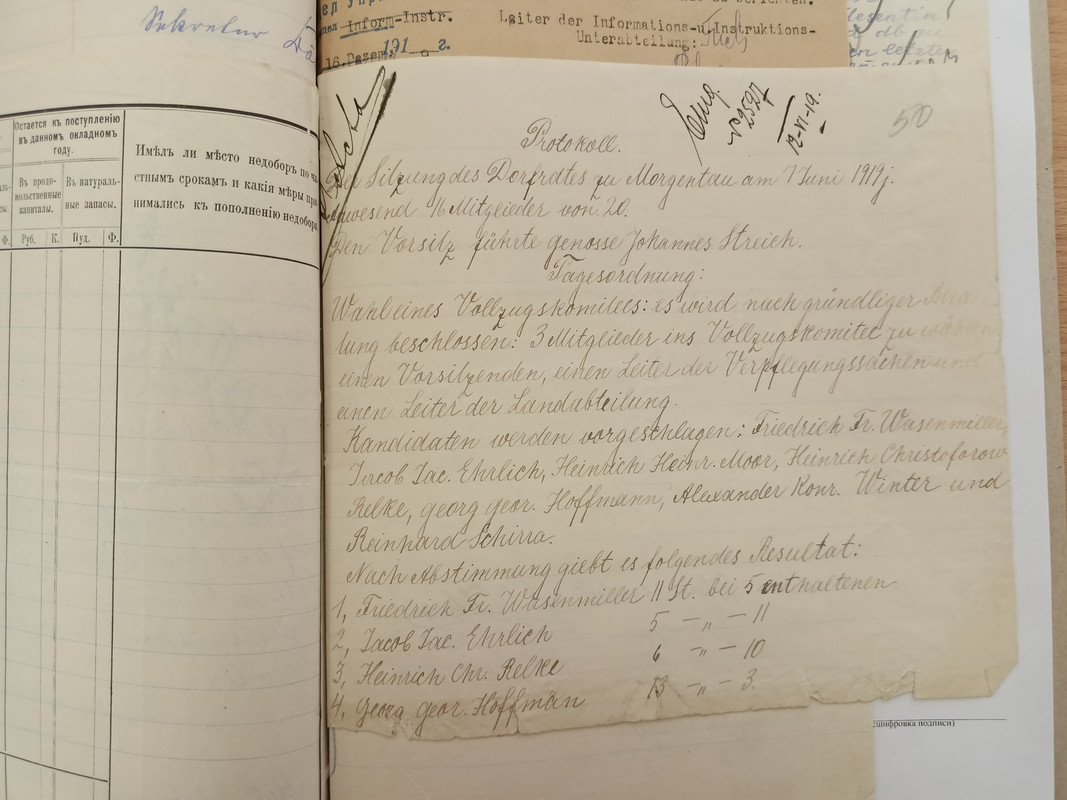 Sekretär
Остается къ поступленію
въ данномъ окладномъ
году.
Въ продо-
вольственные
капиталы.
Въ натураль-
ные запасы.
Ф. Руб. К. Пуд. Ф.
Имѣлъ ли мѣсто недоборъ по
стнымъ срокамъ и какія мѣры при
нимались къ пополненію недобора
Inform-Instr.
16.Dezem 191 г.
Leiter der Informations-u.Instruktions-
Unterabteilung:
Acta
№2597
12-VI-19.
50
Protokoll.
Der Sitzung des Dorfrates zu Morgentau am 7 Juni 1919 j.
Anwesend 16 Mitglieder von 20.
Den Vorsitz führte genosse Johannes Streich.
Tagesordnung:
Wahl eines Vollzugskomitees: es wird nach gründliger Bera
tung beschlossen: 3 Mitglieder ins Vollzugskomitee zu wählen
einen Vorsitzenden, einen Leiter der Verpflegungssachen und
einen Leiter der Landabteilung.
Kandidaten werden vorgeschlagen: Friedrich Fr. Wasenmiller,
Jacob Jac. Ehrlich, Heinrich Heinr. Moor, Heinrich Christoforow
Relke, georg geor. Hoffmann, Alexander Konr. Winter und
Reinhard Schirra.
Nach Abstimmung giebt es folgendes Resultat:
1, Friedrich Fr. Wasenmiller 11 St. bei 5 enthaltenen
2, Jacob Jac. Ehrlich 5 -„- 11
3, Heinrich Chr. Relke 6 -„- 10
4, Georg geor. Hoffman 13 -„- 3.